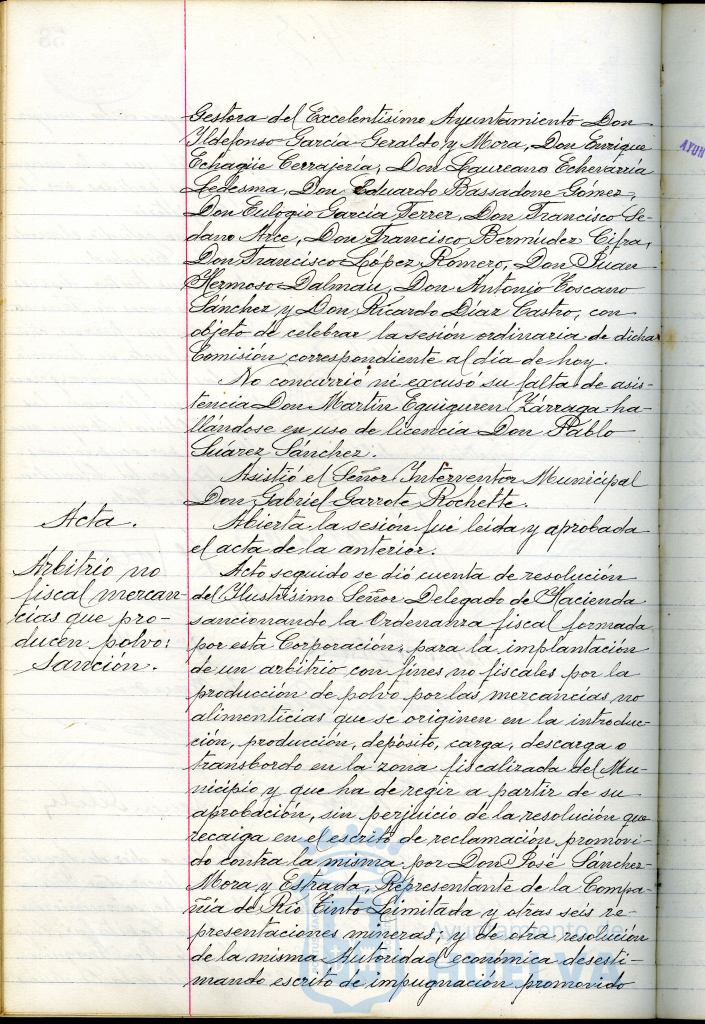 Gestora del Excelentísimo Ayuntamiento Don
Yldefonso García Geraldo y Mora, Don Enrique
Echagüe Cerrajería, Don Laureano Echevarría
Ledesma, Don Eduardo Bassadone Gómez,
Don Eulogio García Ferrer, Don Francisco Se-
dano Arce, Don Francisco Bermúdez Cifra,
Don Francisco López Romero, Don Juan
Hermoso Dalmau, Don Antonio Toscano
Sánchez y Don Ricardo Díaz Castro, con
objeto de celebrar la sesión ordinaria de dicha
Comisión correspondiente al día de hoy.
No concurrió ni excusó su falta de asis-
tencia Don Martín Eguiguren Zárraga ha-
llándose en uso de licencia Don Pablo
Suárez Sánchez.
Asistió el Señor Interventor Municipal
Don Gabriel Garrote Rochette.
Acta.
Abierta la sesión fué leída y aprobada
el acta de la anterior.
Arbitrio no
fiscal mercan-
cías que pro-
ducen polvo:
Sanción.
Acto seguido se dió cuenta de resolución
del Ilustrísimo Señor Delegado de Hacienda
sancionando la Ordenanza fiscal formada
por esta Corporación, para la implantación
de un arbitrio con fines no fiscales por la
producción de polvo por las mercancías no
alimenticias que se originen en la introduc-
ción, producción, depósito, carga, descarga o
transbordo en la zona fiscalizada del Mu-
nicipio y que ha de regir a partir de su
aprobación, sin perjuicio de la resolución que
recaiga en el escrito de reclamación promovi-
do contra la misma por Don José Sánchez-
Mora y Estrada, Representante de la Compa-
ñía de Río Tinto Limitada y otras seis re-
presentaciones mineras; y de otra resolución
de la misma Autoridad económica desesti-
mando escrito de impugnación promovido
Ayuntamiento de
HUELVA